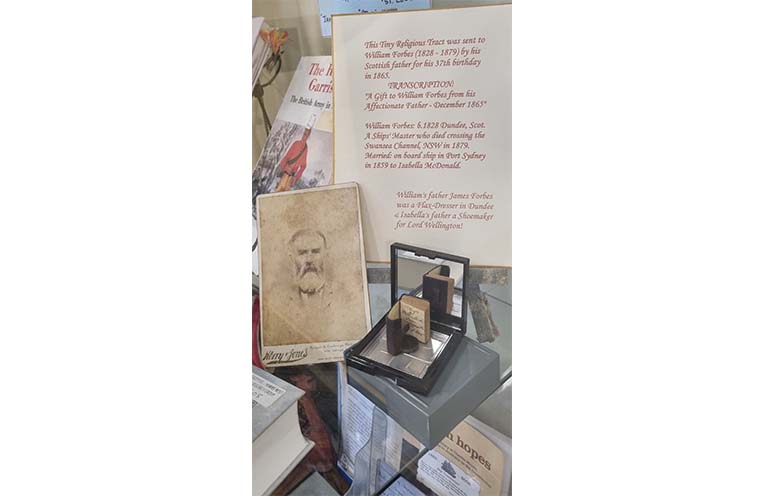 This Tiny Religious Tract was sent to
William Forbes (1828 - 1879) by his
Scottish father for his 37th birthday
in 1865.
TRANSCRIPTION:
"A Gift to William Forbes from his
Affectionate Father - December 1865"
William Forbes: b.1828 Dundee, Scot.
A Ships' Master who died crossing the
Swansea Channel, NSW in 1879.
Married: on board ship in Port Sydney
in 1859 to Isabella McDonald.
William's father James Forbes
was a Flax-Dresser in Dundee
& Isabella's father a Shoemaker
for Lord Wellington!
The
Garris
The British Army in
hopes